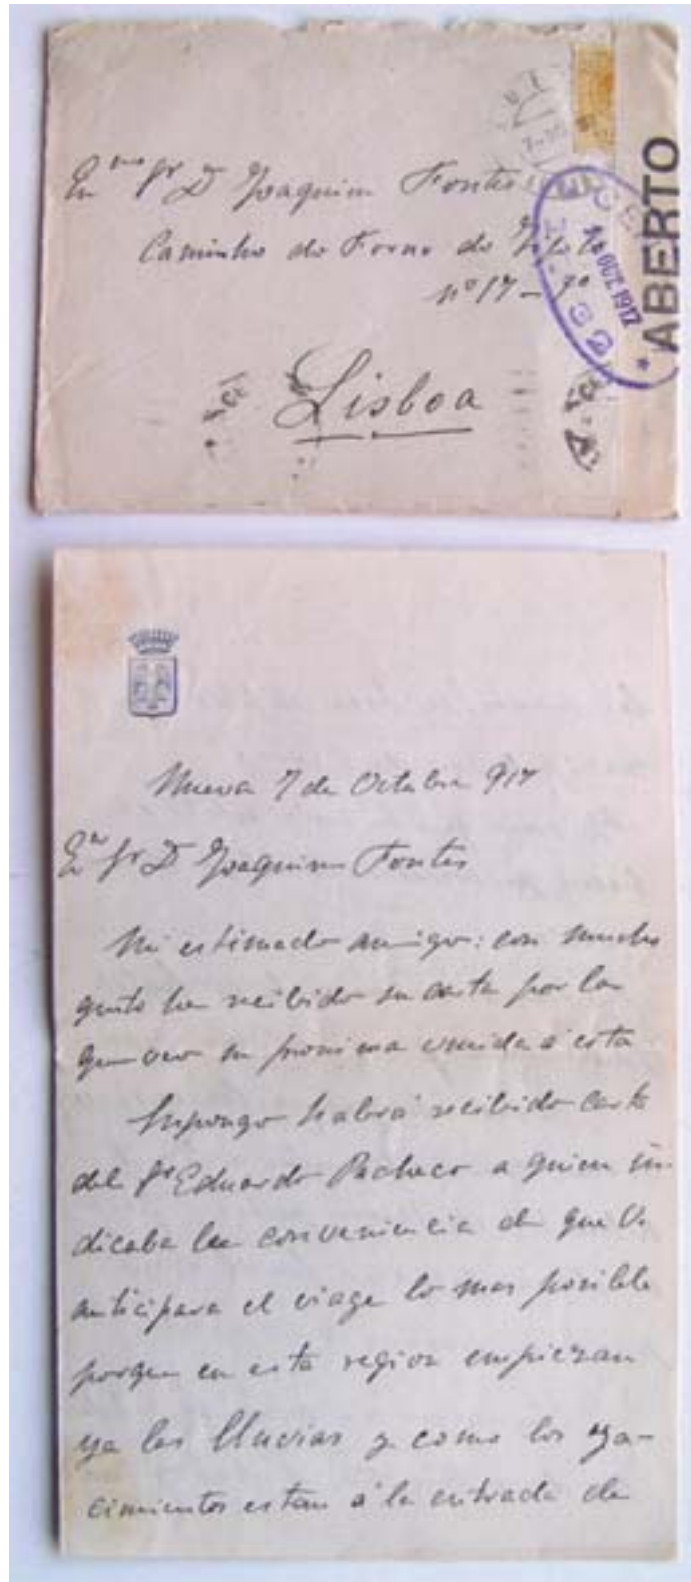 Exmo Sr D Joaquim Fontes
Caminho do Forno do Tijolo
nº 17 - 
Lisboa
ABERTO
OUT. 1917
32
Nueva 7 de Octubre 917
Exmo Sr D Joaquim Fontes
Mi estimado amigo: con mucho
gusto he recibido su carta por la
que veo su proxima venida a esta
Supongo habrá recibido carta
del Sr Eduardo Pacheco a quien in-
dicaba la conveniencia de que V.
anticipara el viage lo mas posible
porque en esta region empiezan
ya las lluvias y como los ya-
cimientos estan á la entrada de